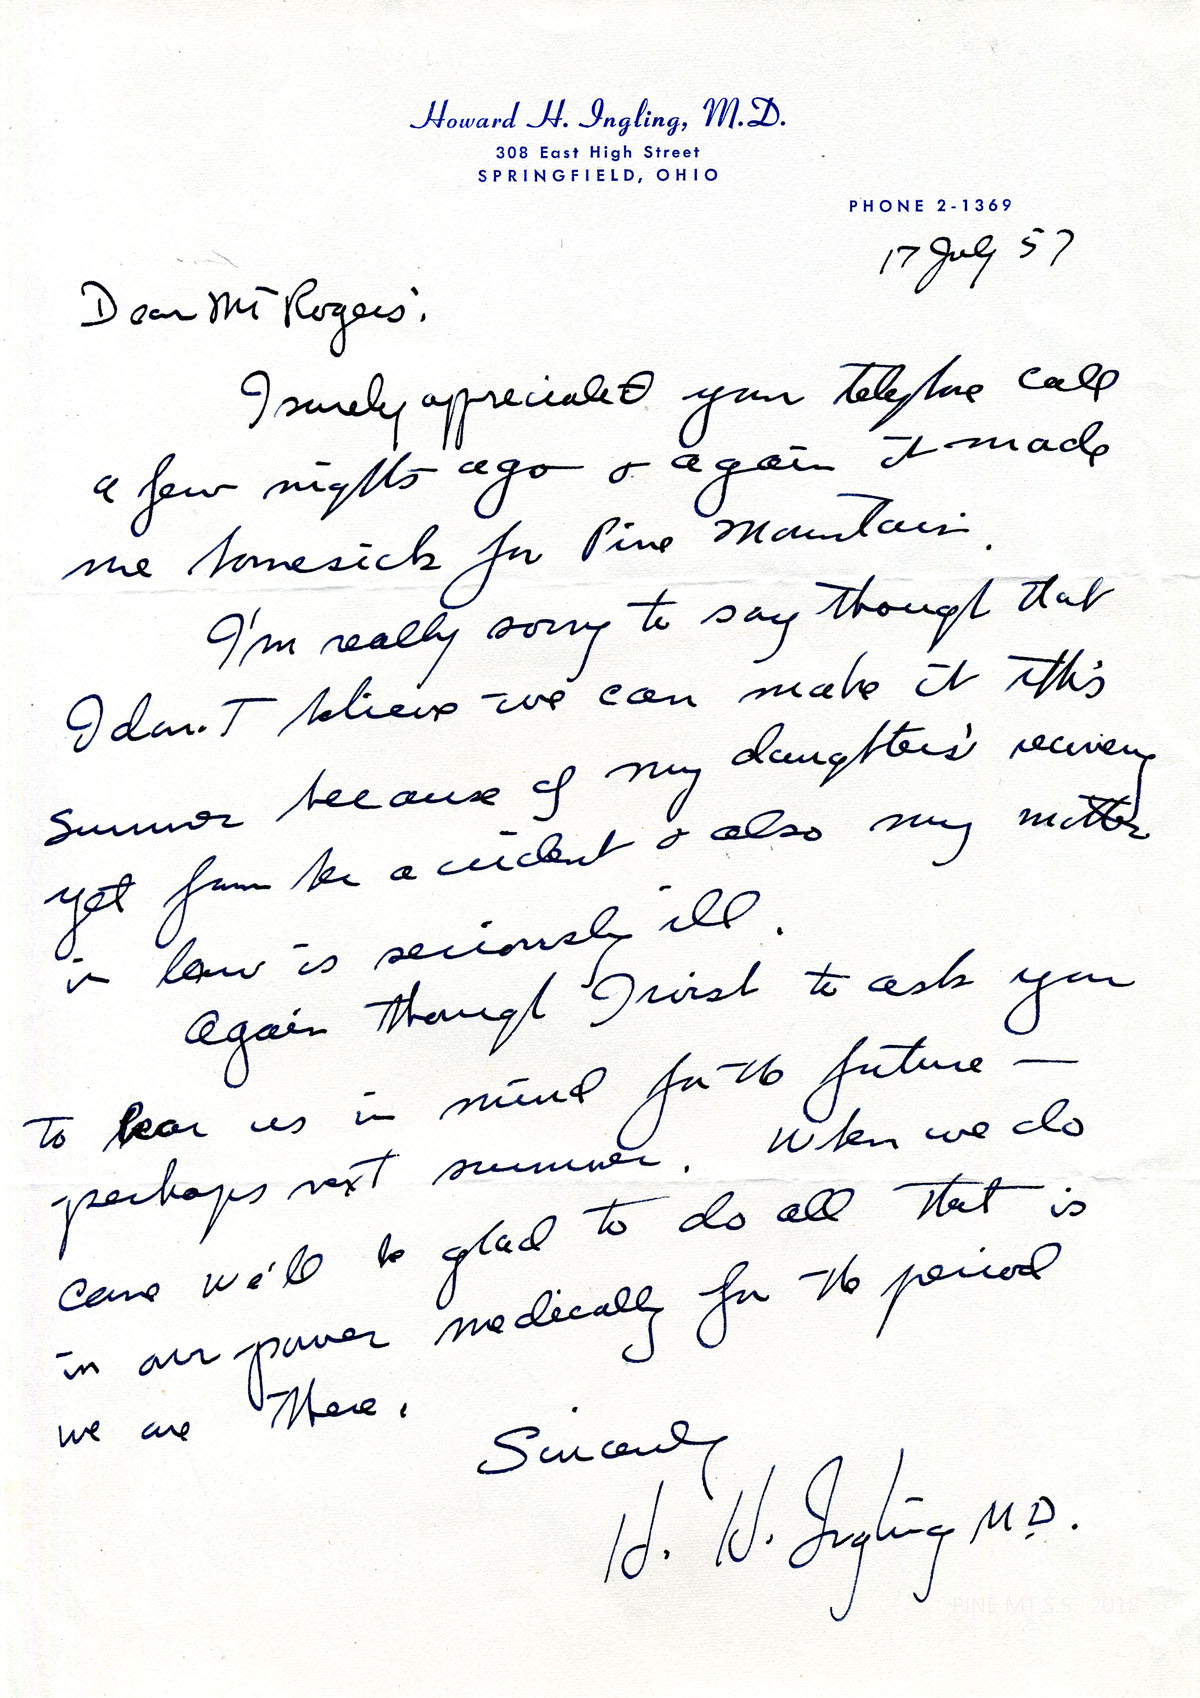 Howard H. Ingling, M.D.
308 East High Street
SPRINGFIELD, OHIO
PHONE 2-1369
17 July 57
Dear Mr Rogers:
I surely appreciated your telephone call
a few nights ago & again it made
me homesick for Pine Mountain.
I'm really sorry to say though that
I don't believe we can make it this
summer because of my daughter's recovery
yet from her accident & also my mother
in law is seriously ill.
Again though I wish to ask you
to bear us in mind for the future —
perhaps next summer. When we do
come we'll be glad to do all that is
in our power medically for the period
we are there.
Sincerely
H. H. Ingling M.D.
PINE MT S.S. 201